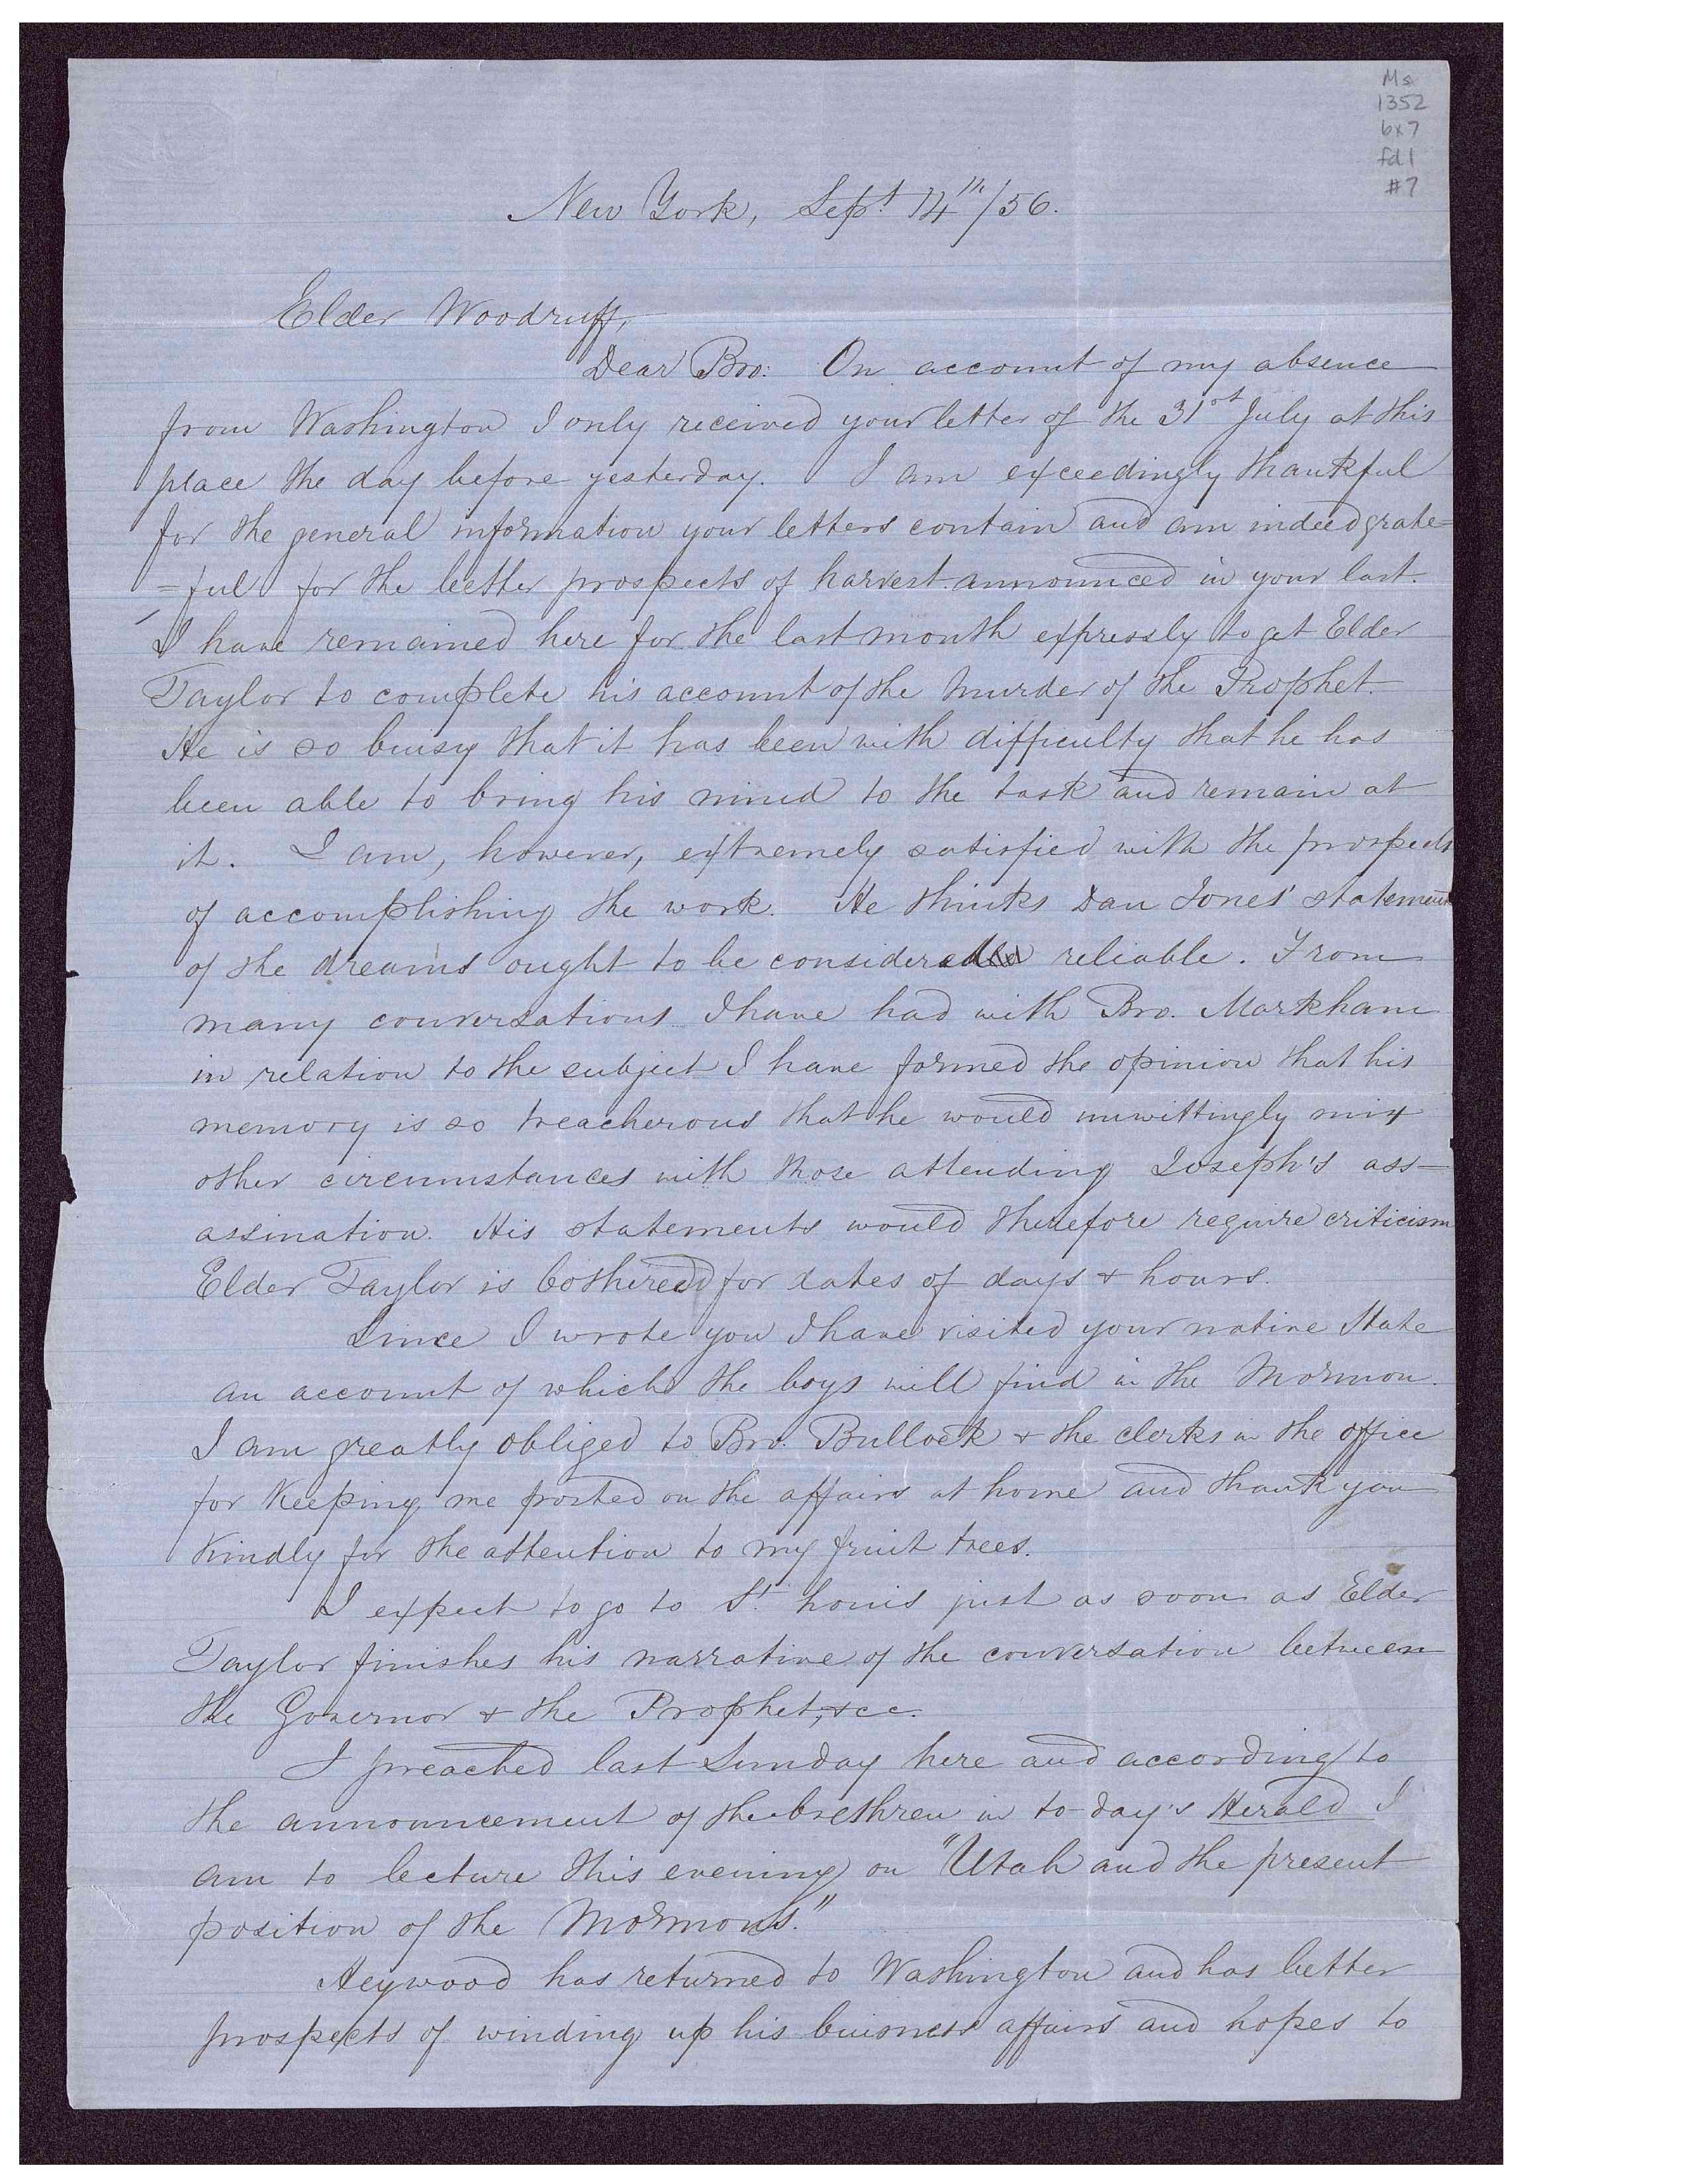 Ms
1352
bx7
fd1
#7
New York, Sept 14th/56.
Elder Woodruff,
Dear Bro: On account of my absence
from Washington I only received your letter of the 31st July at this
place the day before yesterday. I am exceedingly thankful
for the general information your letters contain and am indeed grate=
=ful for the better prospects of harvest announced in your last.
I have remained here for the last month expressly to get Elder
Taylor to complete his account of the murder of the Prophet.
He is so buisy that it has been with difficulty that he has
been able to bring his mind to the task and remain at
it. I am, however, extremely satisfied with the prospects
of accomplishing the work. He thinks Dan Jones' statement
of the dreams ought to be considered reliable. From
many conversations I have had with Bro. Markham
in relation to the subject I have formed the opinion that his
memory is so treacherous that he would unwittingly mix
other circumstances with those attending Joseph's ass-
assination. His statements would therefore require criticism
Elder Taylor is bothered for dates of days & hours.
Since I wrote you I have visited your native State
an account of which the boys will find in the Mormon.
I am greatly obliged to Bro. Bullock & the clerks in the office
for keeping me posted on the affairs at home and thank you
kindly for the attention to my fruit trees.
I expect to go to St. Louis just as soon as Elder
Taylor finishes his narrative of the conversation between
the Governor & the Prophet, &cc.
I preached last Sunday here and according to
the announcement of the brethren in to-day's Herald I
am to lecture this evening on "Utah and the present
position of the Mormons."
Heywood has returned to Washington and has better
prospects of winding up his buisness affairs and hopes to